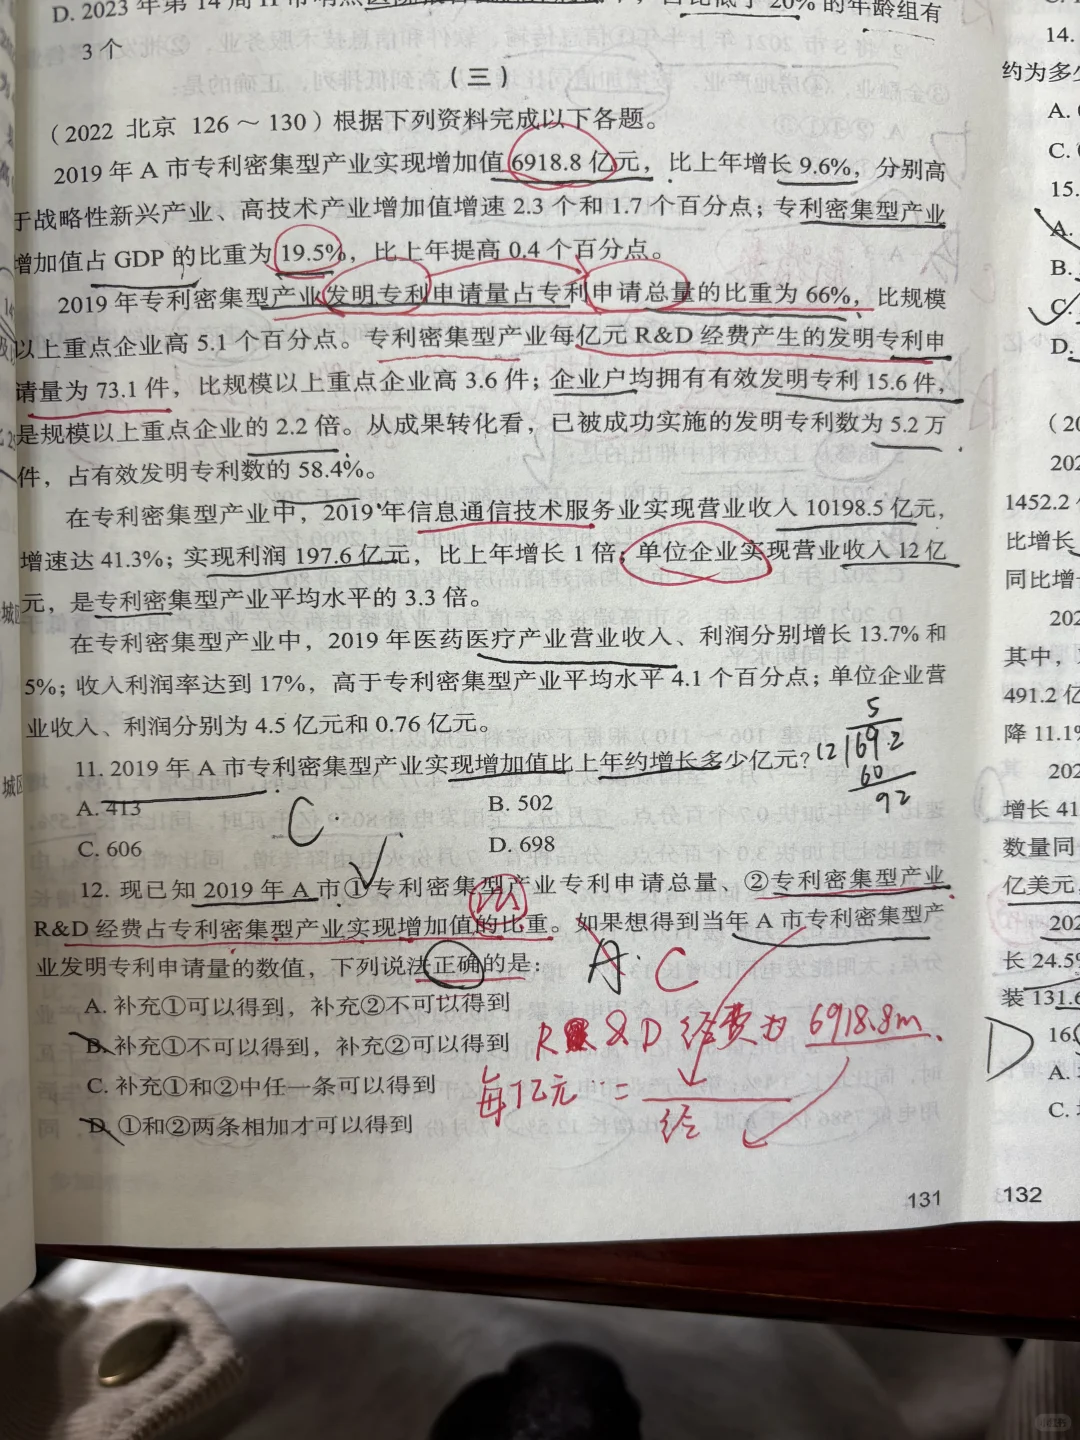 D. 2023 年第 14 周 H 市哨点医院
占比低于 20% 的年龄组有
3 个
(三)
(2022 北京 126～130)根据下列资料完成以下各题。
2019 年 A 市专利密集型产业实现增加值 6918.8 亿元，比上年增长 9.6%，分别高
于战略性新兴产业、高技术产业增加值增速 2.3 个和 1.7 个百分点；专利密集型产业
增加值占 GDP 的比重为 19.5%，比上年提高 0.4 个百分点。
2019 年专利密集型产业发明专利申请量占专利申请总量的比重为 66%，比规模
以上重点企业高 5.1 个百分点。专利密集型产业每亿元 R&D 经费产生的发明专利申
请量为 73.1 件，比规模以上重点企业高 3.6 件；企业户均拥有有效发明专利 15.6 件，
是规模以上重点企业的 2.2 倍。从成果转化看，已被成功实施的发明专利数为 5.2 万
件，占有效发明专利数的 58.4%。
在专利密集型产业中，2019 年信息通信技术服务业实现营业收入 10198.5 亿元，
增速达 41.3%；实现利润 197.6 亿元，比上年增长 1 倍；单位企业实现营业收入 12 亿
元，是专利密集型产业平均水平的 3.3 倍。
在专利密集型产业中，2019 年医药医疗产业营业收入、利润分别增长 13.7% 和
5%；收入利润率达到 17%，高于专利密集型产业平均水平 4.1 个百分点；单位企业营
业收入、利润分别为 4.5 亿元和 0.76 亿元。
5
12 69.2
60
92
11. 2019 年 A 市专利密集型产业实现增加值比上年约增长多少亿元？
A. 413
B. 502
C. 606
D. 698
C.
12. 现已知 2019 年 A 市①专利密集型产业专利申请总量、②专利密集型产业
R&D 经费占专利密集型产业实现增加值的比重。如果想得到当年 A 市专利密集型产
业发明专利申请量的数值，下列说法正确的是：
A. C
A. 补充①可以得到，补充②不可以得到
B. 补充①不可以得到，补充②可以得到
C. 补充①和②中任一条可以得到
D. ①和②两条相加才可以得到
R&D 经费为 6918.8m.
每1亿元 =
经
131
14.
约为多少
A.
C.
15.
A.
B.
C.
D.
1452.2
比增长
同比增
其中，
491.2 亿
降 11.1%
增长 41
数量同
亿美元，
长 24.5%
装 131.6
D
16.
A.
C.
132